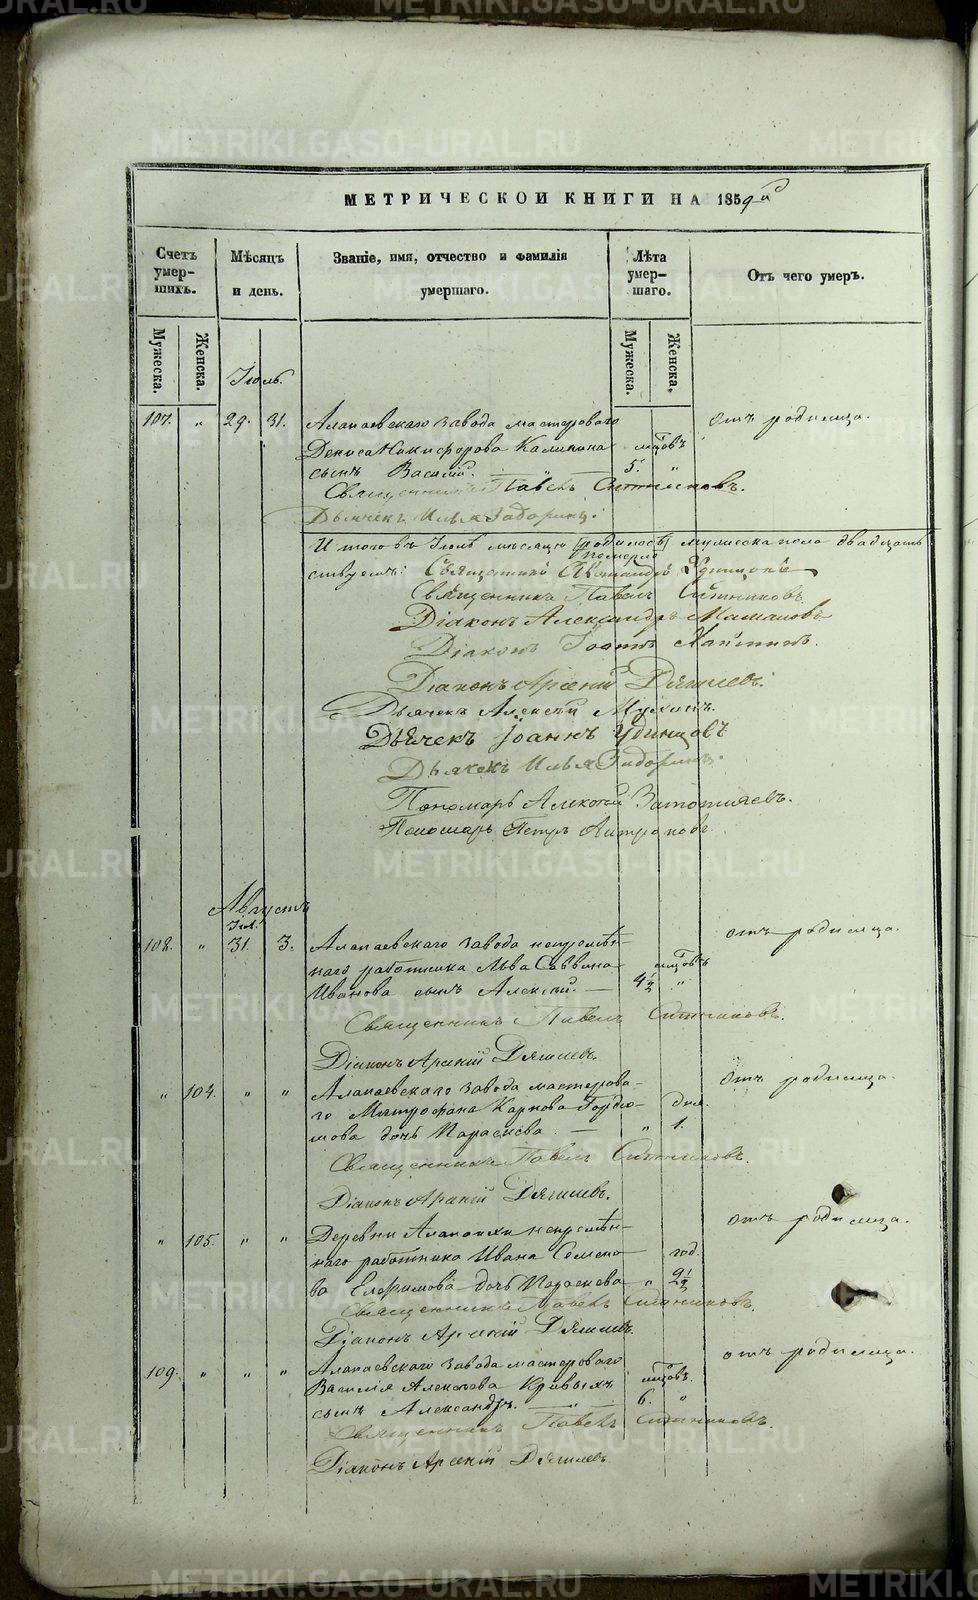 МЕТРИЧЕСКОЙ КНИГИ НА 1859й
Счетъ умер-шихъ.
Мѣсяцъ и день.
Званіе, имя, отчество и фамилія умершаго.
Лѣта умер-шаго.
Отъ чего умеръ.
Мужеска.
Женска.
Мужеска.
Женска.
Іюль.
107. „ 29. 31. Алапаевскаго завода мастероваго отъ родимца.
Дениса Никифорова Калинина мцовъ
сынъ Василій. 5. „
Священникъ Павелъ Ситниковъ.
Дьячекъ Илья Задоринъ.
И того въ Іюлѣ мѣсяцѣ родилось померло мужеска пола двадцать
Священникъ Павелъ Ситниковъ
Діаконъ Александръ Мамаловъ
Діаконъ Іоаннъ
Діаконъ Арсеній Дягилевъ.
Дьячекъ Алексѣй
Дьячекъ Іоаннъ Удинцовъ
Дьячекъ Илья Задоринъ.
Пономарь Алексѣй
Пономарь Петръ
Августъ
Іюл.
108. „ 31. 3. Алапаевскаго завода непремѣн- отъ родимца.
наго работника Льва Саввина мцовъ
Иванова сынъ Алексѣй. 4½ „
Священникъ Павелъ Ситниковъ.
Діаконъ Арсеній Дягилевъ.
„ 104. „ „ Алапаевскаго завода мастерова- отъ родимца.
го Митрофана Карпова дня.
дочь Параскева. „ 1.
Священникъ Павелъ Ситниковъ.
Діаконъ Арсеній Дягилевъ.
„ 105. „ „ Деревни непремѣн- отъ родимца.
наго работника Ивана Семено- год.
ва Елфимова дочь Параскева „ 2½
Священникъ Павелъ Ситниковъ.
Діаконъ Арсеній Дягилевъ.
109. „ „ „ Алапаевскаго завода мастероваго отъ родимца.
Василія Алексѣева Кривыхъ мцовъ.
сынъ Александръ. 6. „
Священникъ Павелъ Ситниковъ.
Діаконъ Арсеній Дягилевъ
METRIKI.GASO-URAL.RU